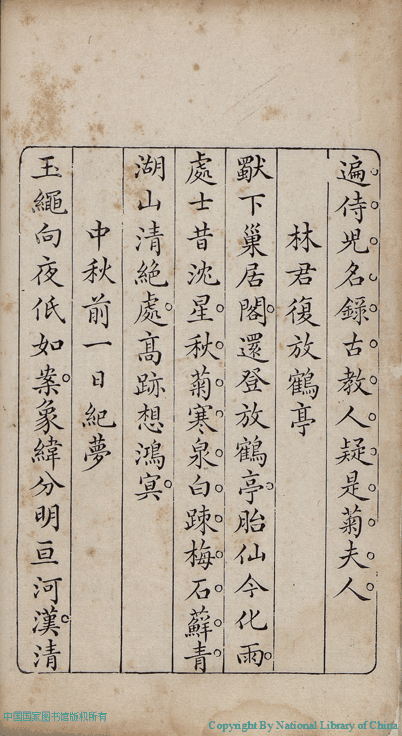 遍侍兒名錄古教人疑是菊夫人
林君復放鶴亭
猒下巢居閣還登放鶴亭胎仙今化雨
處士昔沈星秋菊寒泉白踈梅石蘚青
湖山清絕處高跡想鴻冥
中秋前一日紀夢
玉繩向夜低如案象緯分明亘河漢清
中国国家图书馆版权所有
Copyright By National Library of China